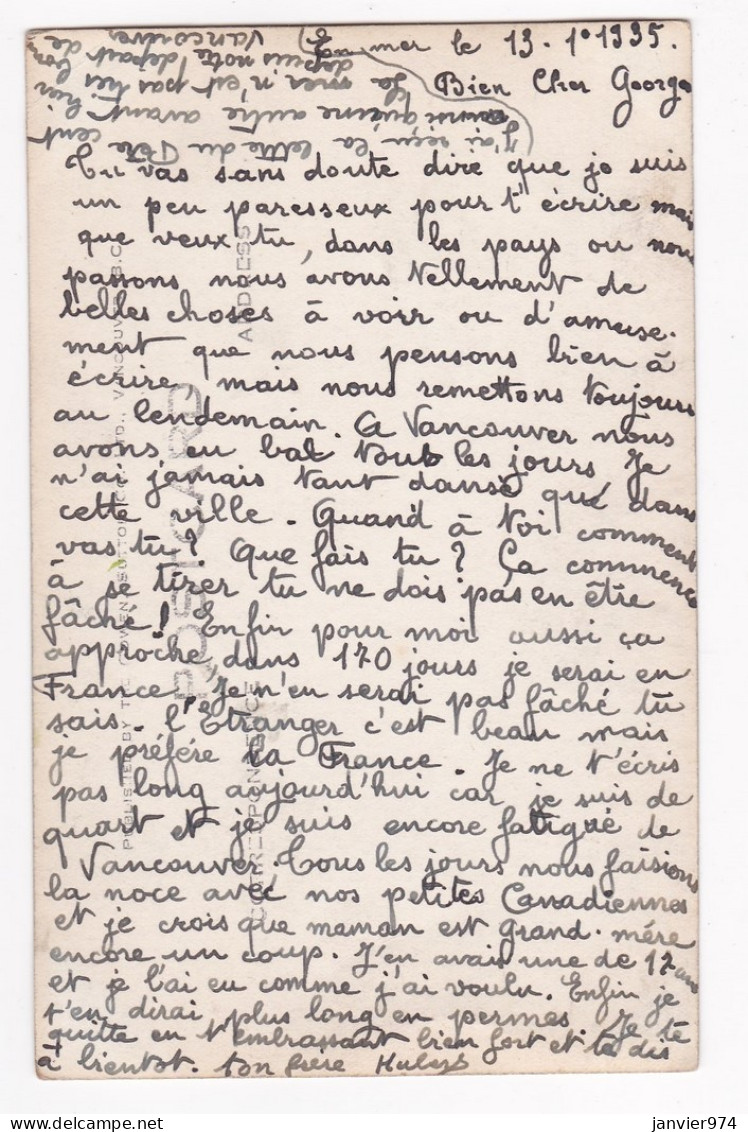 En mer le 13.1º 1935.
Bien Cher George
Tu vas sans doute dire que je suis
un peu paresseux pour t'écrire mais
que veux tu, dans les pays ou nous
passons nous avons tellement de
belles choses à voir ou d'amuse-
ment que nous pensons bien à
écrire mais nous remettons toujours
au lendemain. A Vancouver nous
avons eu bal tout les jours. Je
n'ai jamais tant dansé que dans
cette ville. Quand à toi comment
vas tu? Que fais tu? Ça commence
à se tirer tu ne dois pas en être
fâché! Enfin pour moi aussi ça
approche, dans 170 jours je serai en
France. Je n'en serai pas fâché tu
sais. l'Etranger c'est beau mais
je préfére la France. Je ne t'écris
pas long aujourd'hui car je suis de
quart et je suis encore fatigué de
Vancouver. Tous les jours nous faisions
la noce avec nos petites Canadiennes
et je crois que maman est grand-mére
encore un coup. J'en avait une de 17 ans
et je l'ai eu comme j'ai voulu. Enfin je
t'en dirai plus long en permes. Je te
quitte en t'embrassant bien fort et te dis
à bientot. ton frère
J'ai reçu la lettre du Père cent
ainsi qu'une autre avant hier
la mer n'est pas très bon
depuis notre départ de
Vancouver
POST CARD
CORRESPONDENCE
ADDRESS
PUBLISHED BY THE GOWEN SUTTON CO. LTD., VANCOUVER, B.C.
janvier974